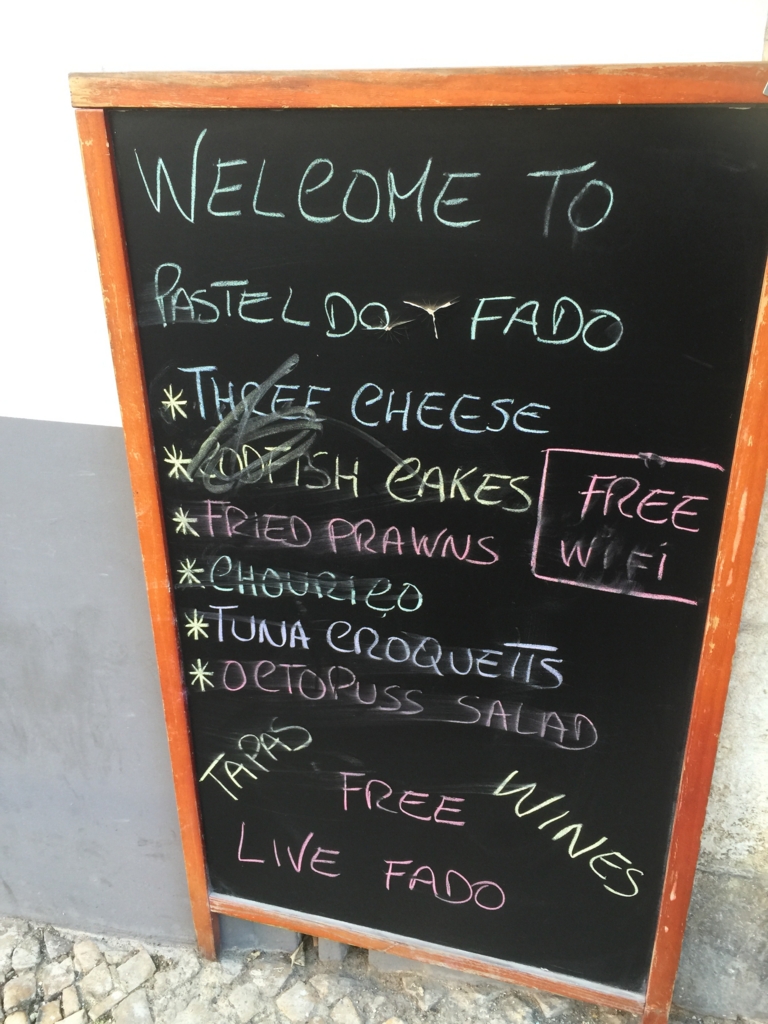 WELCOME TO
PASTEL DO FADO
* THREE CHEESE
* CODFISH CAKES
* FRIED PRAWNS
* CHOURIÇO
* TUNA CROQUETTS
* OCTOPUSS SALAD
FREE
WiFi
TAPAS
FREE
WINES
LIVE FADO